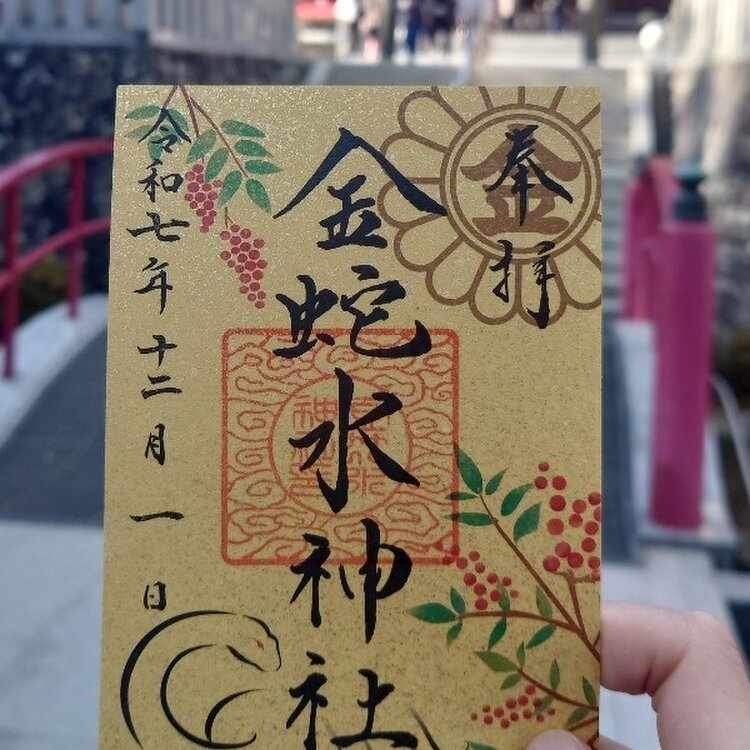 奉拝
金
金蛇水神社
令和七年十二月一日